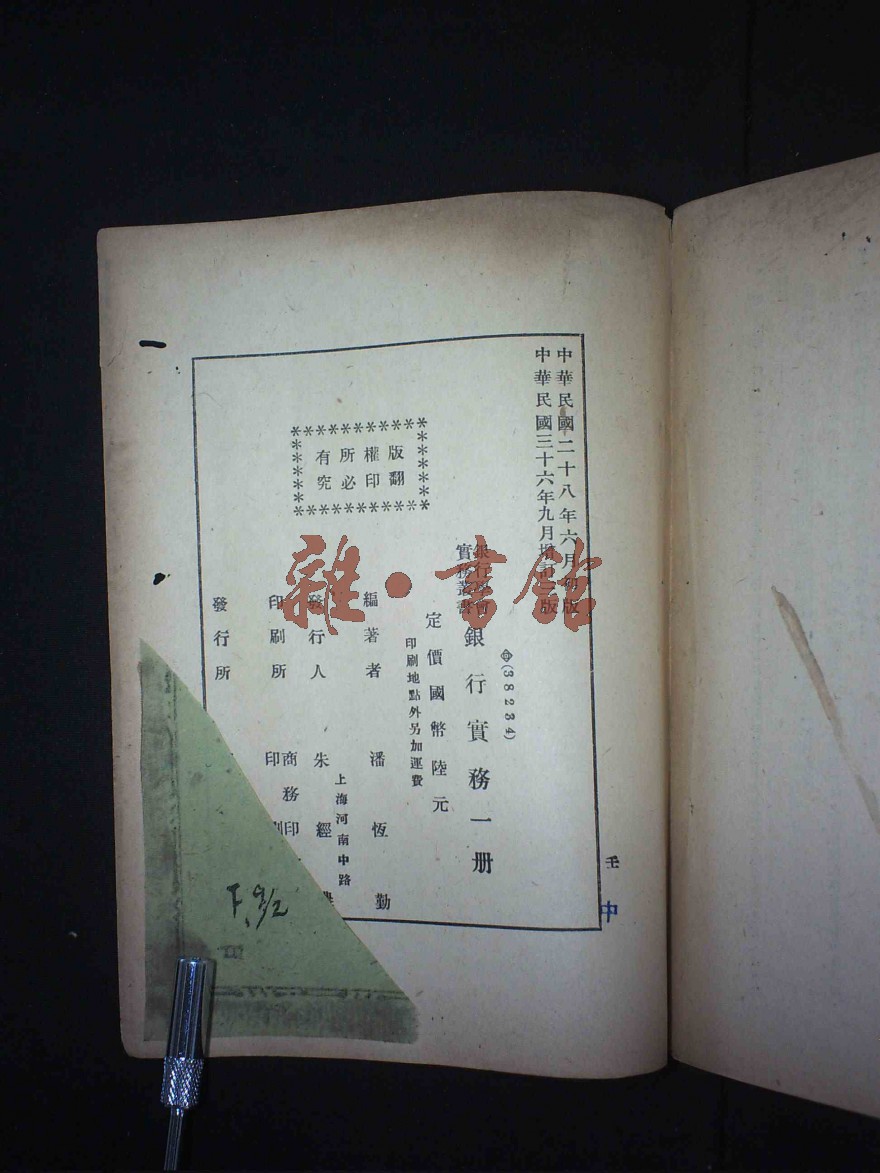 中華民國二十八年六月初版
中華民國三十六年九月增訂 版
㊥(38234)
銀行學會
實務叢書
銀行實務一册
定價國幣陸元
印刷地點外另加運費
版權所有
翻印必究
編著者 潘恆勤
上海河南中路
發行人 朱經
印刷所 商務印
印
發行所
雜·書館
壬
中
T. 9/2